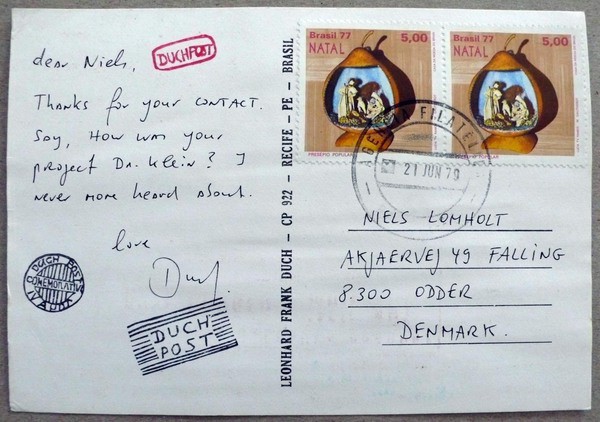 dear Niels,
DUCHPOST
Thanks for your contact.
Say, How was your
project Dr. Klein? I
never more heard about.
love
Duch.
DUCH POST
COMEMORATIVO
DUCH
POST
LEONHARD FRANK DUCH – CP 922 – RECIFE – PE – BRASIL
Brasil 77 5,00
NATAL
PRESÉPIO POPULAR
Brasil 77 5,00
NATAL
21 JUN 79
NIELS LOMHOLT
AKJAERVEJ 49 FALLING
8.300 ODDER
DENMARK.